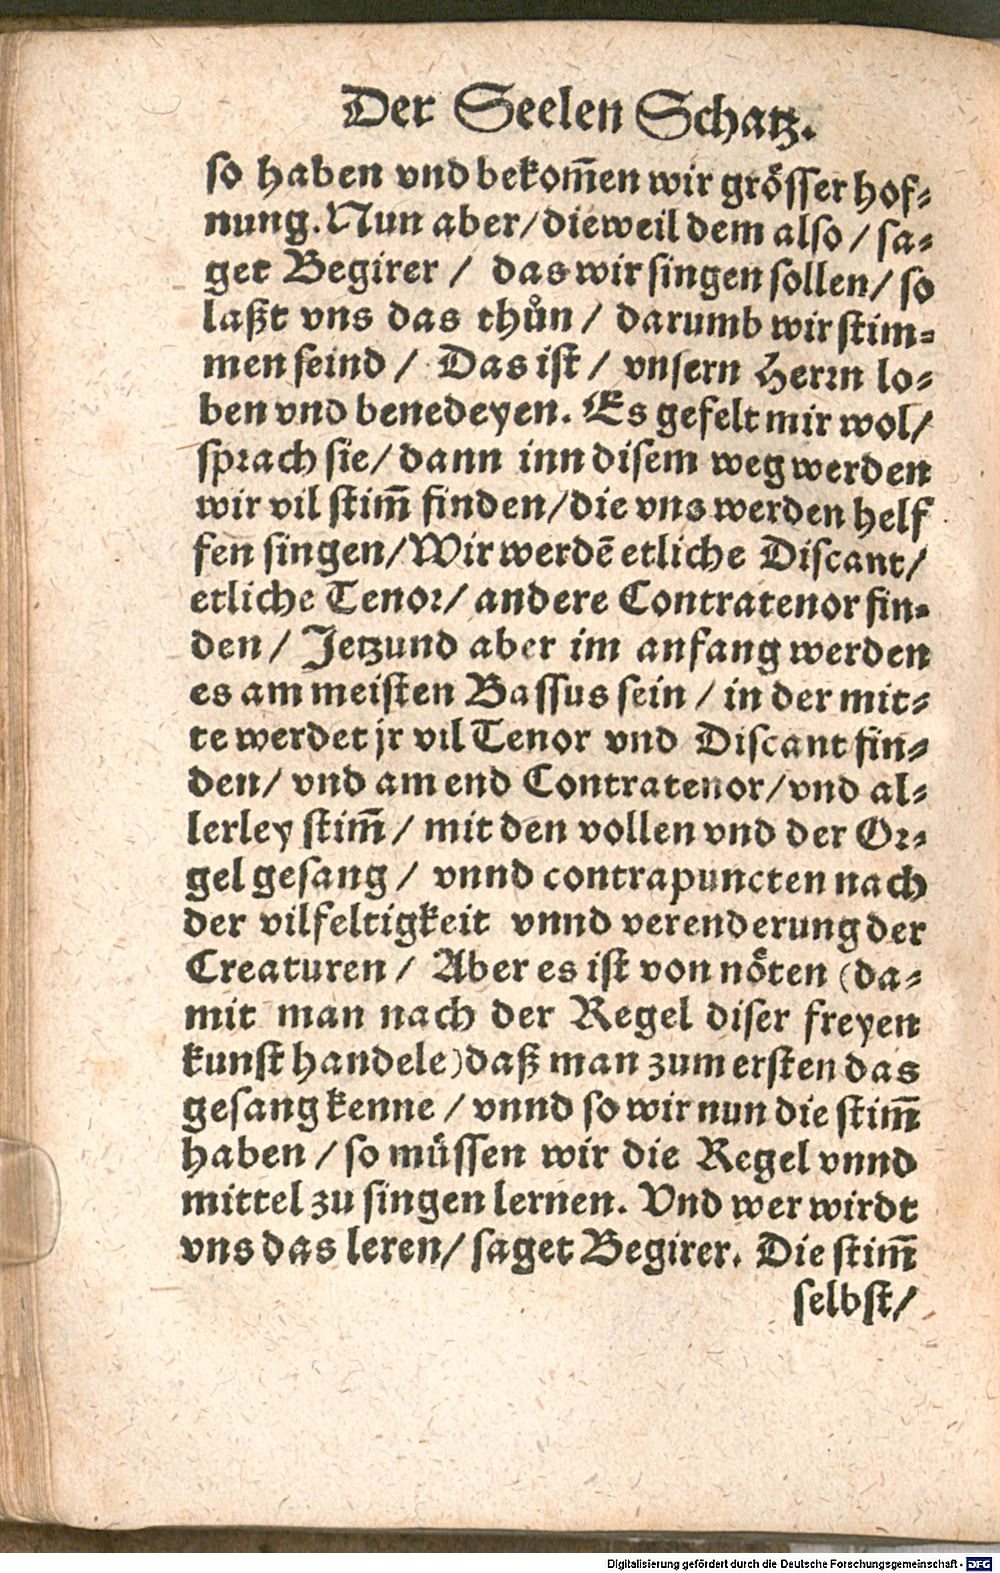 Der Seelen Schatz.
so haben vnd bekom̃en wir grösser hof⸗
nung. Nun aber / dieweil dem also / sa⸗
get Begirer / das wir singen sollen / so
laßt vns das thůn / darumb wir stim⸗
men seind / Das ist / vnsern Herrn lo⸗
ben vnd benedeyen. Es gefelt mir wol /
sprach sie / dann inn disem weg werden
wir vil stim̃ finden / die vns werden helf
fen singen / Wir werdẽ etliche Discant /
etliche Tenor / andere Contratenor fin⸗
den / Jetzund aber im anfang werden
es am meisten Bassus sein / in der mit⸗
te werdet jr vil Tenor vnd Discant fin⸗
den / vnd am end Contratenor / vnd al⸗
lerley stim̃ / mit den vollen vnd der Or⸗
gel gesang / vnnd contrapuncten nach
der vilfeltigkeit vnnd verenderung der
Creaturen / Aber es ist von nöten (da⸗
mit man nach der Regel diser freyen
kunst handele) daß man zum ersten das
gesang kenne / vnnd so wir nun die stim̃
haben / so müssen wir die Regel vnnd
mittel zu singen lernen. Vnd wer wirdt
vns das leren / saget Begirer. Die stim̃
selbst /
Digitalisierung gefördert durch die Deutsche Forschungsgemeinschaft - DFG